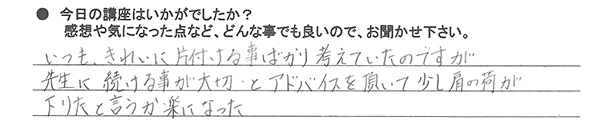 ● 今日の講座はいかがでしたか？
感想や気になった点など、どんな事でも良いので、お聞かせ下さい。
いつも、きれいに片付ける事ばかり考えていたのですが
先生に続ける事が大切・とアドバイスを頂いて少し肩の荷が
下りたと言うか楽になった